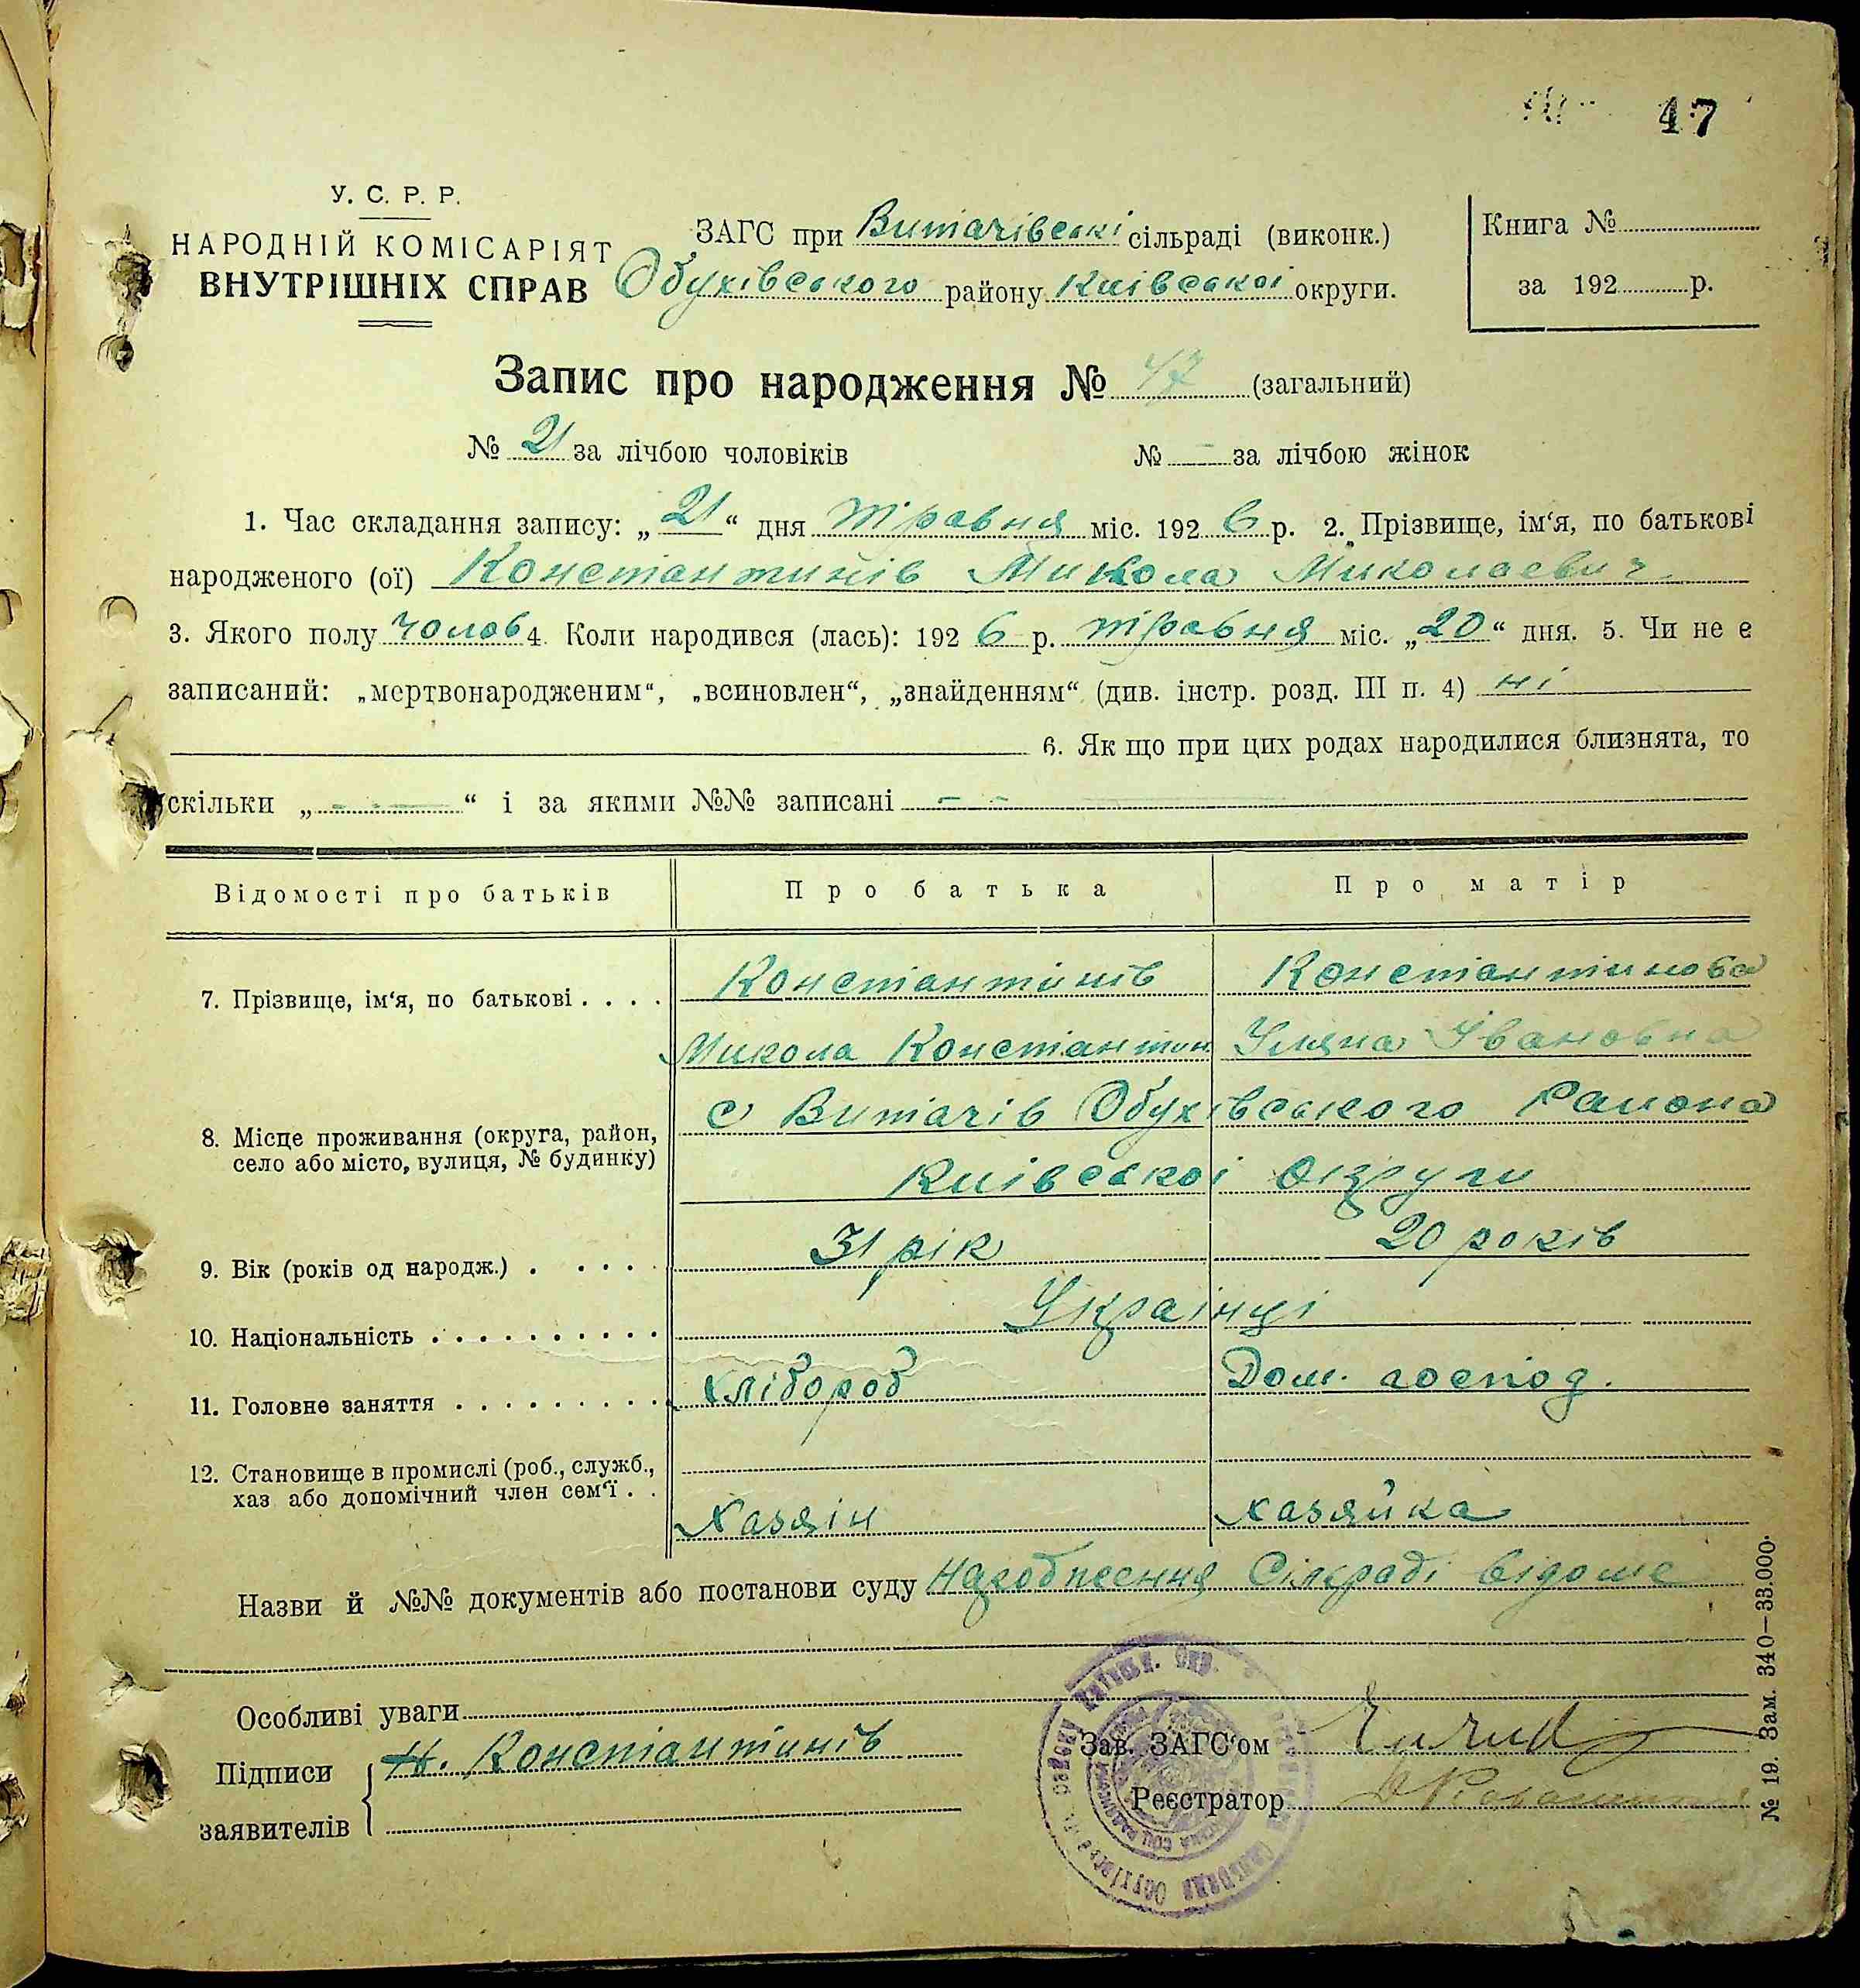 47
У. С. Р. Р.
НАРОДНІЙ КОМІСАРІЯТ
ВНУТРІШНІХ СПРАВ
ЗАГС при Витачівські сільраді (виконк.)
Обухівського району Київської округи.
Книга №
за 192 р.
Запис про народження № 47 (загальний)
№ 21 за лічбою чоловіків № - за лічбою жінок
1. Час складання запису: „21“ дня травня міс. 1926 р. 2. Прізвище, ім‘я, по батькові
народженого (ої) Константинів Микола Миколаевич.
3. Якого полу чолов 4. Коли народився (лась): 1926 р. травня міс. „20“ дня. 5. Чи не є
записаний: „мертвонародженим“, „всиновлен“, „знайденням“ (див. інстр. розд. III п. 4) ні
6. Як що при цих родах народилися близнята, то
скільки „ - - “ і за якими №№ записані - -
Відомості про батьків Про батька Про матір
7. Прізвище, ім‘я, по батькові . . . . Константинів Константинова
Микола Константин Уляна Івановна
8. Місце проживання (округа, район,
село або місто, вулиця, № будинку)
с Витачів Обухівського Района
Київскої округи
9. Вік (років од народж.) . . . . . 31 рік 20 років
10. Національність . . . . . . . . . . Українці
11. Головне заняття . . . . . . . . . хлібороб Дом. господ.
12. Становище в промислі (роб., служб.,
хаз або допомічний член сем‘ї . .
Хазяін хазяйка
Назви й №№ документів або постанови суду Сілкраді відоме
Особливі уваги
Підписи
заявителів
Н. Константинів
Зав. ЗАГС‘ом
Реєстратор
№ 19. Зам. 340—33.000.